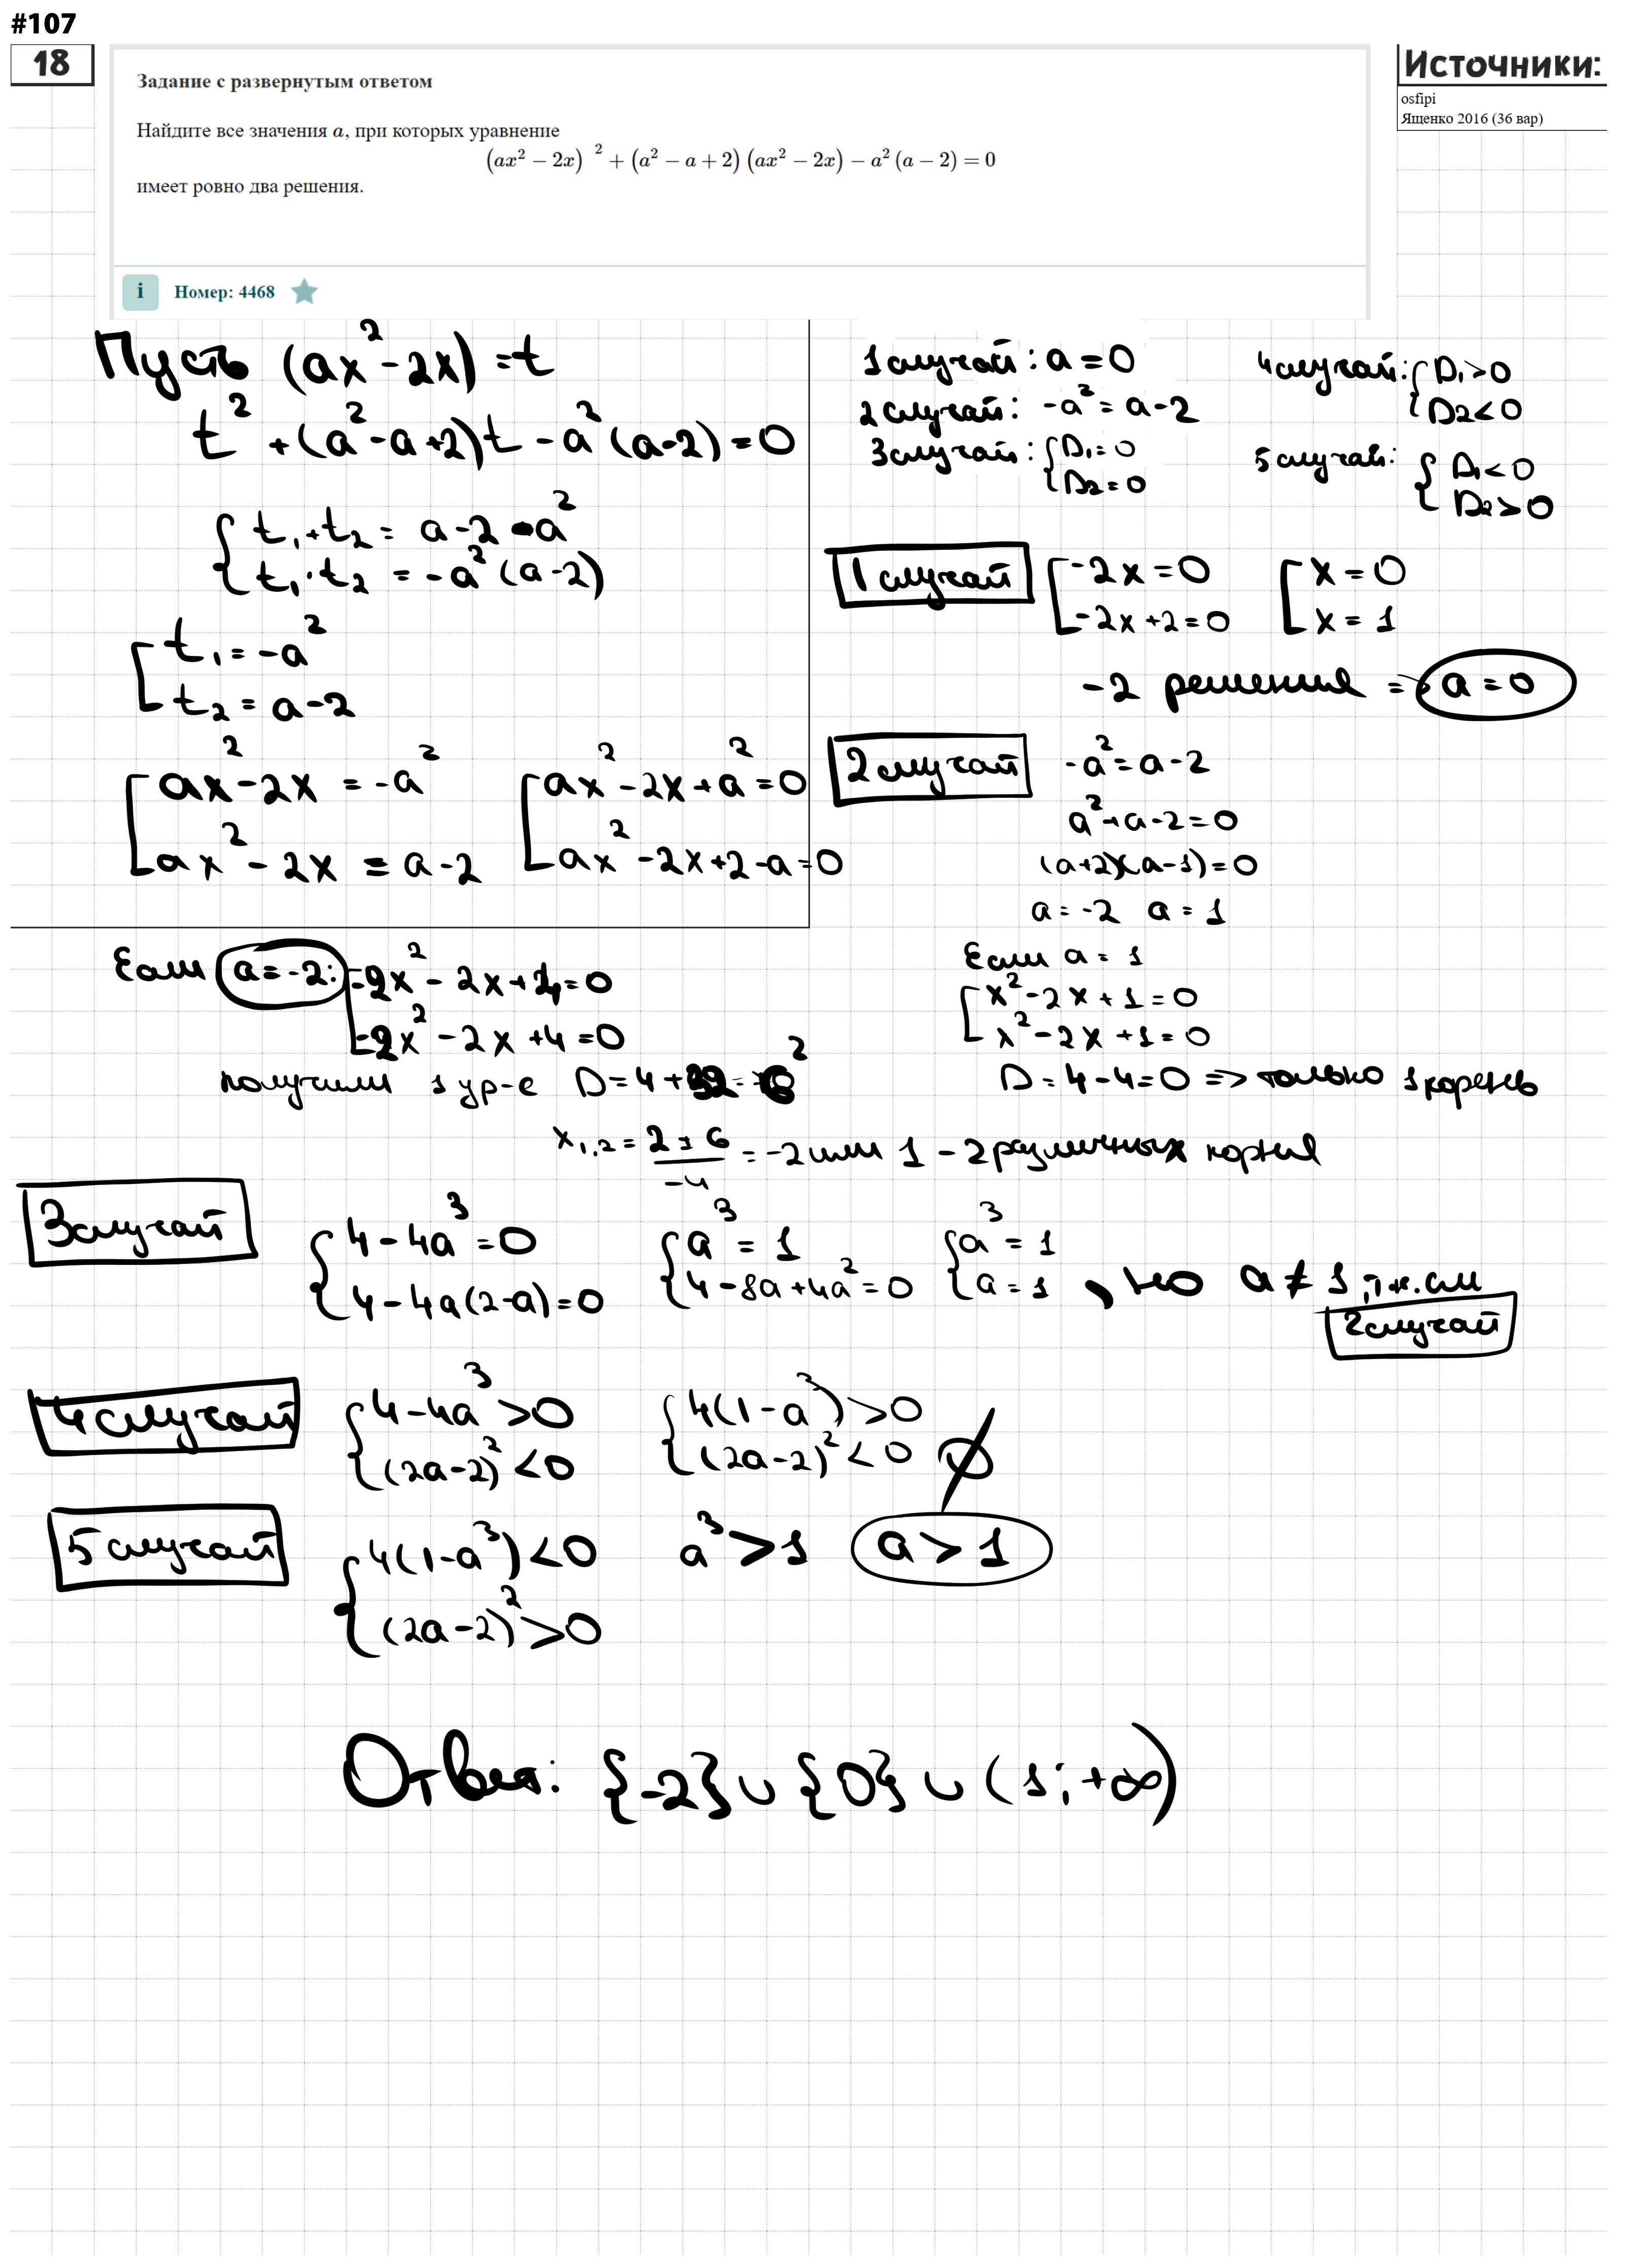 #107
18
Источники:
osfipi
Ященко 2016 (36 вар)
Задание с развернутым ответом
Найдите все значения a, при которых уравнение
(ax² − 2x)² + (a² − a + 2)(ax² − 2x) − a²(a − 2) = 0
имеет ровно два решения.
i Номер: 4468
Пусть (ax²-2x)=t
t²+(a²-a+2)t-a²(a-2)=0
{ t₁+t₂ = a-2-a²
{ t₁·t₂ = -a²(a-2)
[ t₁=-a²
[ t₂=a-2
[ ax²-2x = -a² [ ax²-2x+a²=0
[ ax²-2x = a-2 [ ax²-2x+2-a=0
1 случай: a=0
2 случай: -a²=a-2
3 случай: { D₁=0
{ D₂=0
4 случай: { D₁>0
{ D₂<0
5 случай: { D₁<0
{ D₂>0
1 случай [ -2x=0 [ x=0
[ -2x+2=0 [ x=1
-2 решения => a=0
2 случай -a²=a-2
a²+a-2=0
(a+2)(a-1)=0
a=-2 a=1
Если a=-2: [ -2x²-2x+4=0
[ -2x²-2x+4=0
получили 1 ур-е D=4+32=6²
x₁,₂ = (2±6)/-4 = -2 или 1 - 2 различных корня
Если a=1
[ x²-2x+1=0
[ x²-2x+1=0
D=4-4=0 => только 1 корень
3 случай { 4-4a³=0 { a³=1 { a³=1
{ 4-4a(2-a)=0 { 4-8a+4a²=0 { a=1 , но a≠1, т.к. см
2 случай
4 случай { 4-4a³>0 { 4(1-a³)>0
{ (2a-2)²<0 { (2a-2)²<0 ∅
5 случай { 4(1-a³)<0 a³>1 a>1
{ (2a-2)²>0
Ответ: {-2}∪{0}∪(1;+∞)